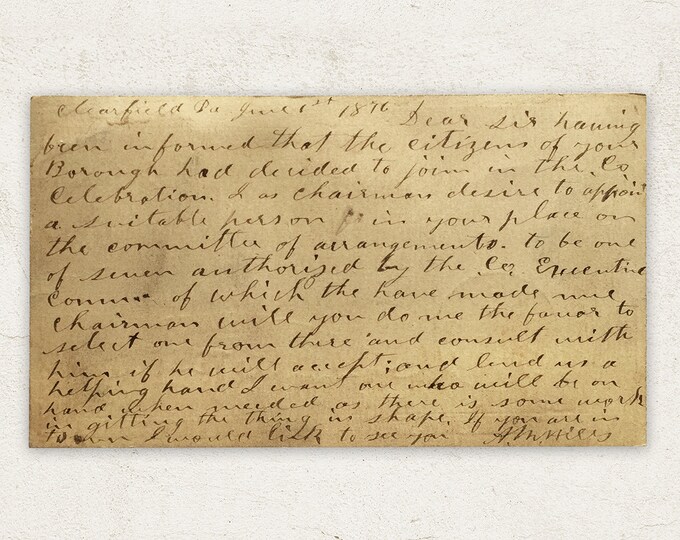 Clearfield Pa June 1st 1876
Dear Sir having
been informed that the citizens of your
Borough had decided to join in the Co
Celebration. I as chairman desire to appoint
a suitable person in your place on
the committee of arrangements. to be one
of seven authorised by the Co, Executive
Comm of which the have made me
Chairman will you do me the favor to
select one from there and consult with
him if he will accept; and lend us a
helping hand I want one who will be on
hand when needed as there is some work
in gitting the thing in shape. If you are in
I would like to see you